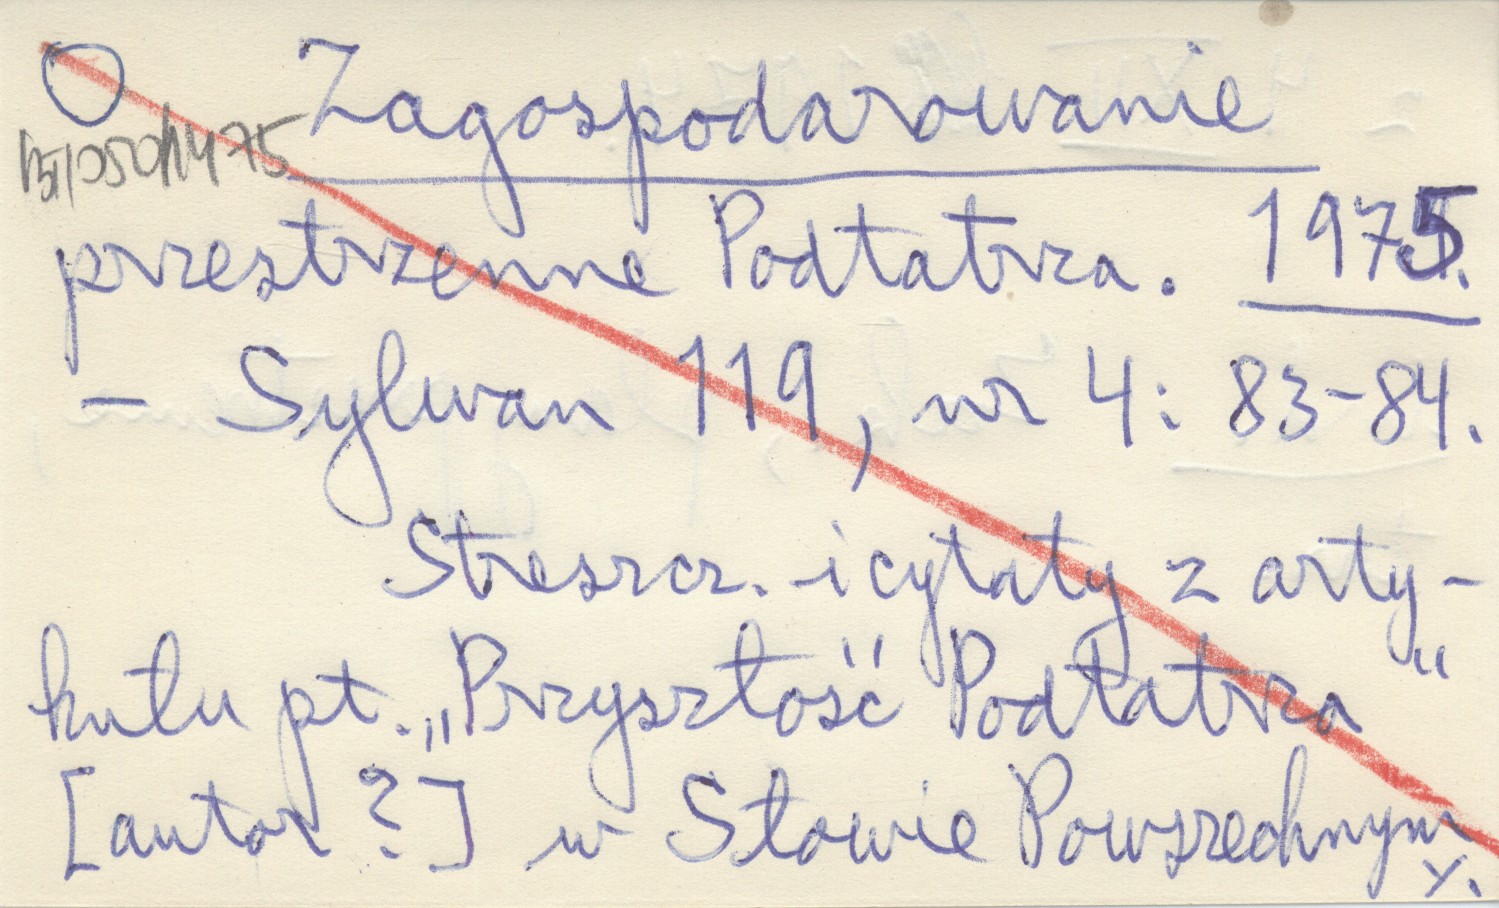 Zagospodarowanie
przestrzenne Podtatrza. 1975.
- Sylwan 119, nr 4: 83-84.
Streszcz. i cytaty z arty-
kułu pt. „Przyszłość Podtatrza"
[autor?] w Słowie Powszechnym